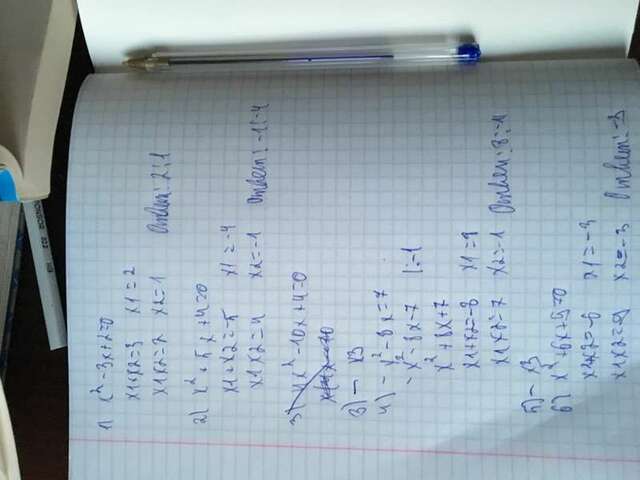 1) x² - 3x + 2 = 0
x1 + x2 = 3 x1 = 2
x1x2 = 2 x2 = 1 Ответ: 2; 1
2) x² + 5x + 4 = 0
x1 + x2 = -5 x1 = -4
x1x2 = 4 x2 = -1 Ответ: -1; -4
3) 4x² - 10x + 4 = 0
3) - хз
4) - x² - 8x = 7
- x² - 8x - 7 |: -1
x² + 8x + 7
x1 + x2 = -8 x1 = 8
x1x2 = 7 x2 = -1 Ответ: 8; -1
5) - хз
6) x² + 6x + 9 = 0
x1x2 = -6 x1 = -3
x1x2 = 9 x2 = -3 Ответ: -3